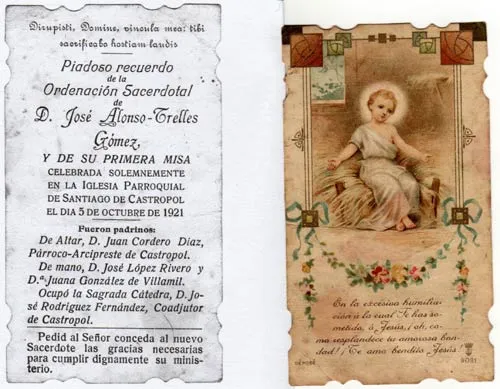 Dirupisti, Domine, vincula mea: tibi
sacrificabo hostiam laudis
Piadoso recuerdo
de la
Ordenación Sacerdotal
de
D. José Alonso-Trelles
Gómez,
Y DE SU PRIMERA MISA
CELEBRADA SOLEMNEMENTE
EN LA IGLESIA PARROQUIAL
DE SANTIAGO DE CASTROPOL
EL DIA 5 DE OCTUBRE DE 1921
Fueron padrinos:
De Altar, D. Juan Cordero Díaz,
Párroco-Arcipreste de Castropol.
De mano, D. José López Rivero y
D.ª Juana González de Villamil.
Ocupó la Sagrada Cátedra, D. Jo-
sé Rodríguez Fernández, Coadjutor
de Castropol.
Pedid al Señor conceda al nuevo
Sacerdote las gracias necesarias
para cumplir dignamente su minis-
terio.
En la excesiva humilla-
ción á la cual Te has so-
metido, ó Jesús, ¡oh, co-
mo resplandece tu amorosa bon-
dad! ¡Te amo bendito Jesús!
DÉPOSÉ